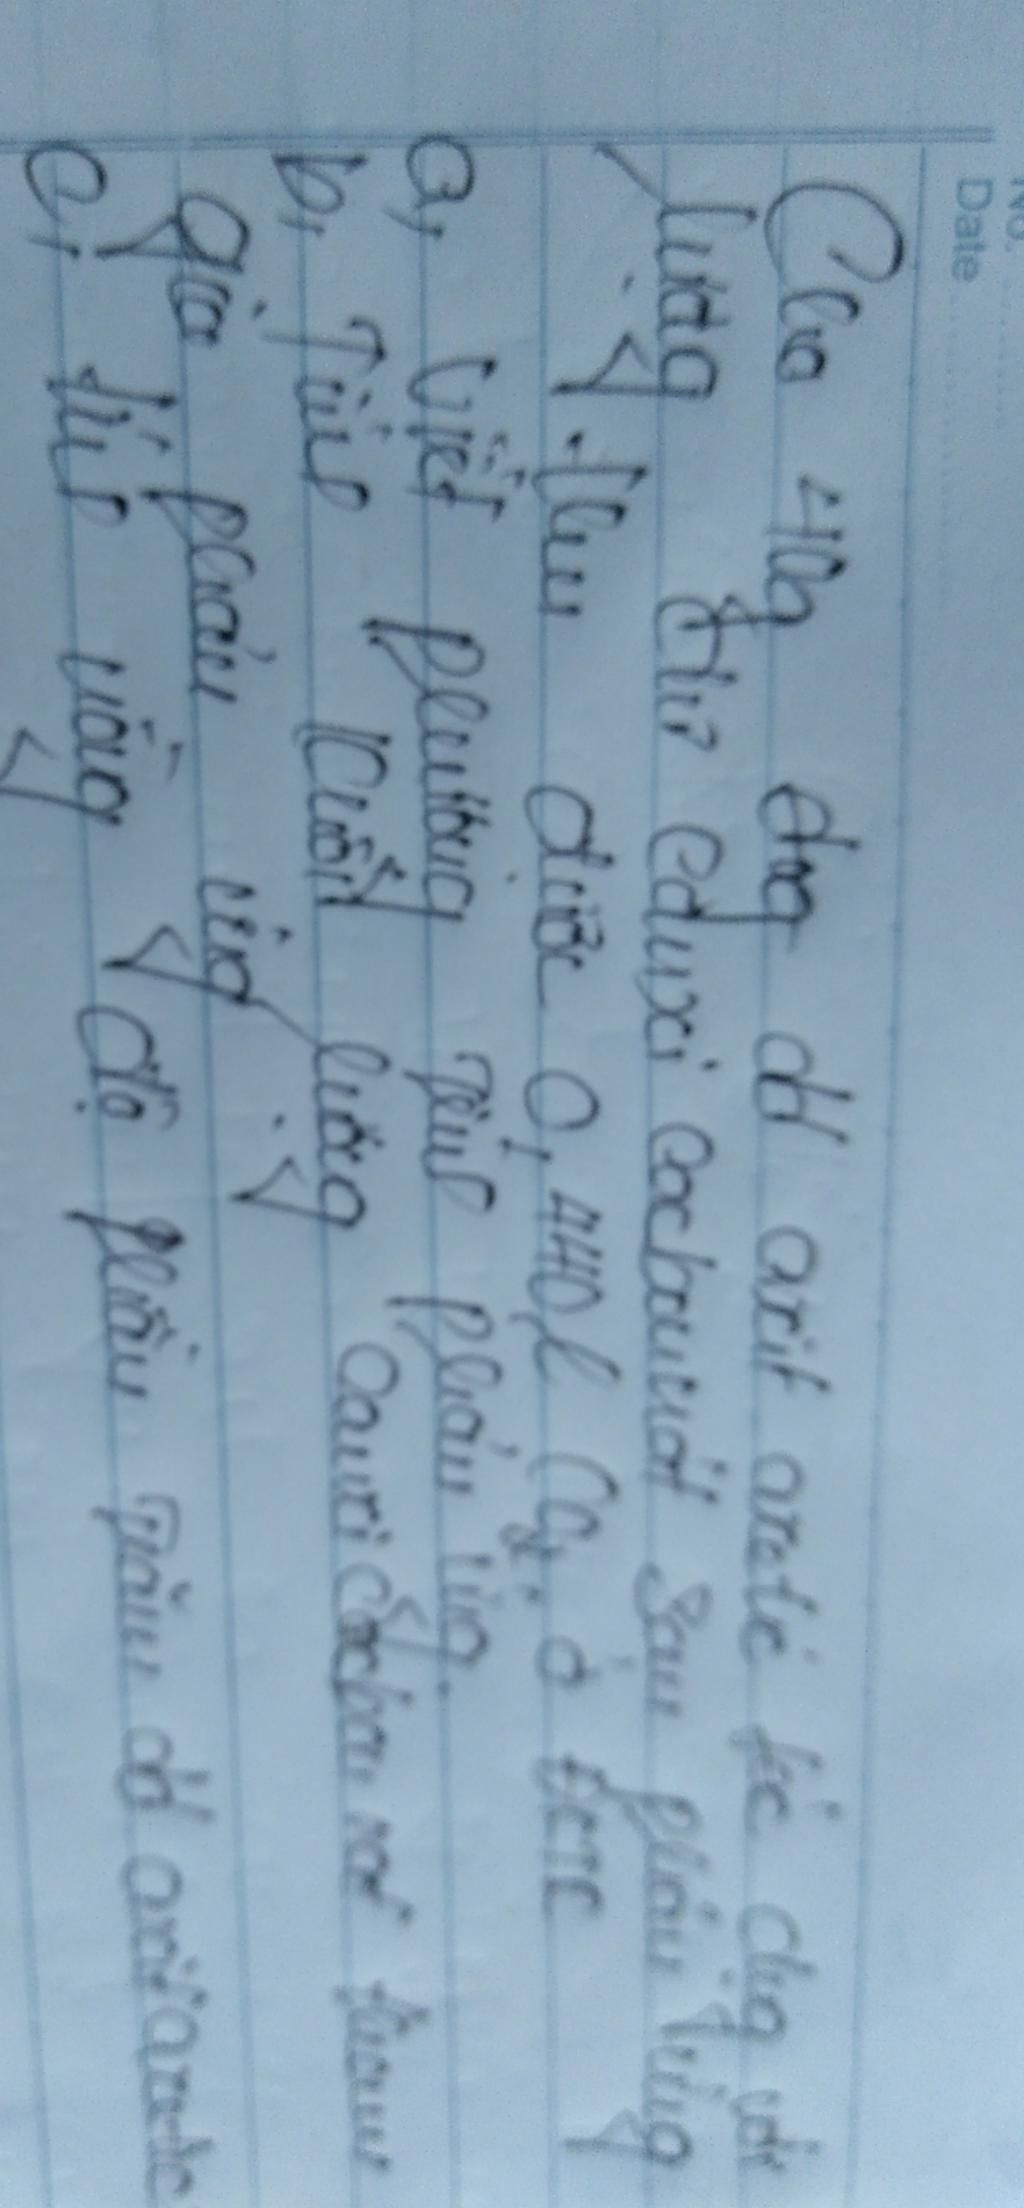 No.
Date
Cho 40g dug dd axit axetic tác dụg với
lượng dư canxi cacbonat Sau phản ứng
thu được 0,448l CO2 ở đktc
a, Viết phương trình phản ứng.
b, Tính khối lượng canxi cacbonat tham
gia phản ứng
c, tính nồng độ phần trăm dd axit axetic